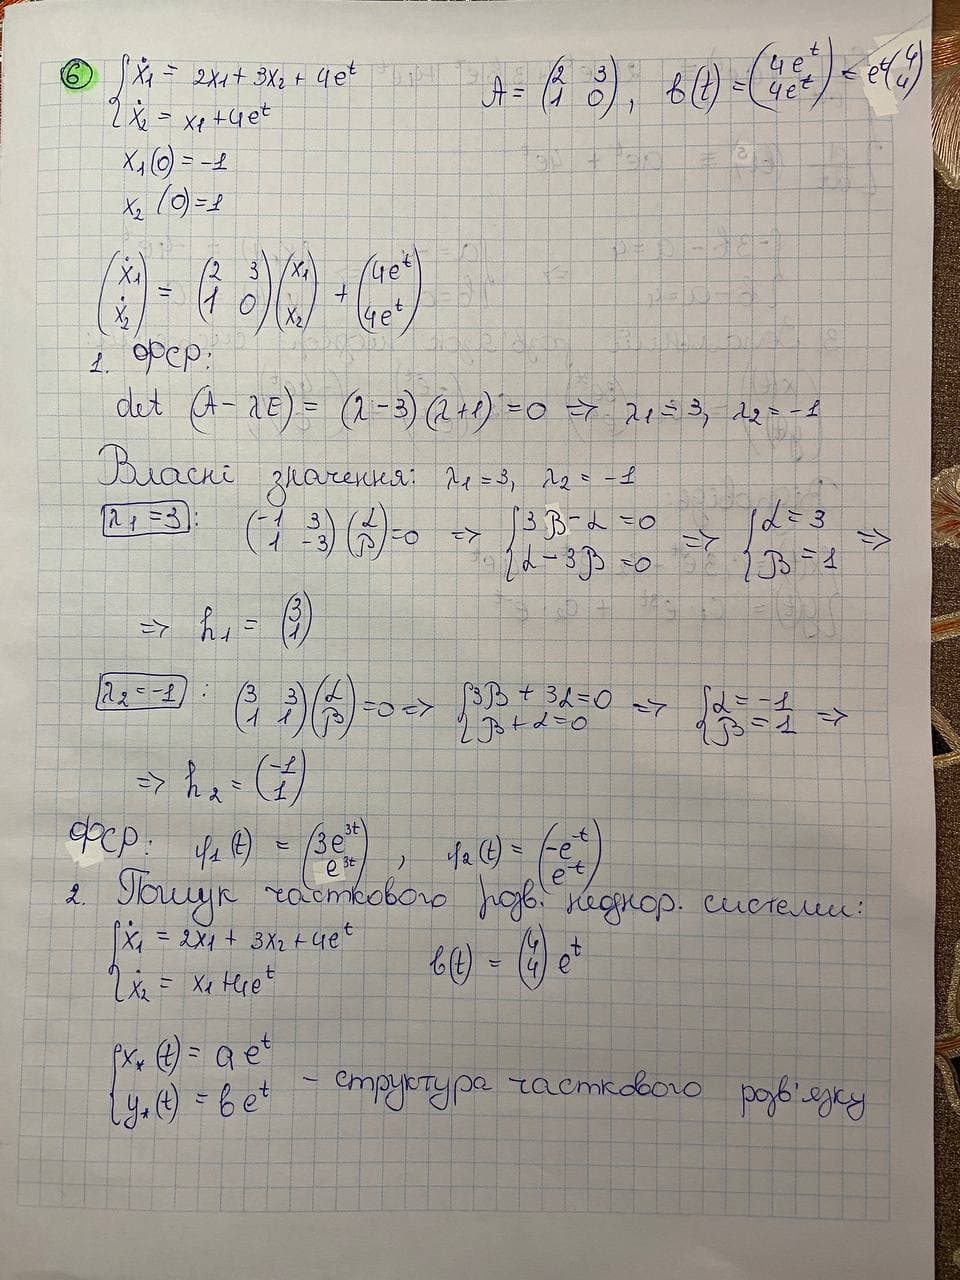 6 { ẋ1 = 2x1 + 3x2 + 4e^t   A = (2 3; 1 0), b(t) = (4e^t; 4e^t) = e^t(4; 4)
{ ẋ2 = x1 + 4e^t
x1(0) = -1
x2 (0) = 1
(ẋ1; ẋ2) = (2 3; 1 0)(x1; x2) + (4e^t; 4e^t)
1. ФСР:
det (A - λE) = (λ-3)(λ+1) = 0 => λ1 = 3, λ2 = -1
Власні значення: λ1 = 3, λ2 = -1
λ1 = 3 : (-1 3; 1 -3)(α; β) = 0 => { 3β - α = 0; α - 3β = 0 => { α = 3; β = 1 =>
=> h1 = (3; 1)
λ2 = -1 : (3 3; 1 1)(α; β) = 0 => { 3β + 3α = 0; β + α = 0 => { α = -1; β = 1 =>
=> h2 = (-1; 1)
ФСР: φ1(t) = (3e^3t; e^3t), φ2(t) = (-e^-t; e^-t)
2. Пошук часткового розв. неоднор. системи:
{ ẋ1 = 2x1 + 3x2 + 4e^t   b(t) = (4; 4) e^t
{ ẋ2 = x1 + 4e^t
{ x*(t) = a e^t
{ y*(t) = b e^t - структура часткового розв'язку